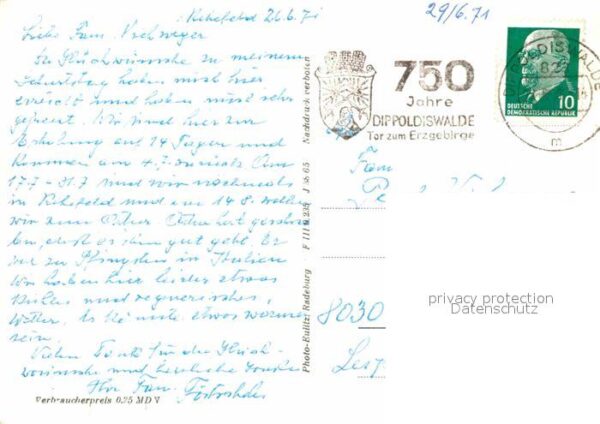 Rehefeld 26.6.71
29/6.71
Liebe Fam.
Die Glückwünsche zu meinem
Geburtstag haben mich hier
erreicht und haben mich sehr
gefreut. Wir sind hier zur
Erholung auf 14 Tagen und
kommen am 4.7. zurück. Am
17.7 - 31.7 sind wir nochmals
in Rehefeld und am 14.8. wollte
wir zum
es ihm gut geht. Er
war zu Pfingsten in Italien
Wir haben hier leider etwas
kühles und regnerisches
Wetter. Es könnte etwas wärmer
sein.
Vielen Dank für die Glück-
wünsche und herzliche Grüße
Ihre Fam.
Verbraucherpreis 0,25 MDN
Photo-Kulitz, Radeburg F III 9 235 J 65 Nachdruck verboten
750
Jahre
DIPPOLDISWALDE
Tor zum Erzgebirge
DIPPOLDISWALDE
m
DEUTSCHE
DEMOKRATISCHE REPUBLIK
10
Fam
8030
privacy protection
Datenschutz